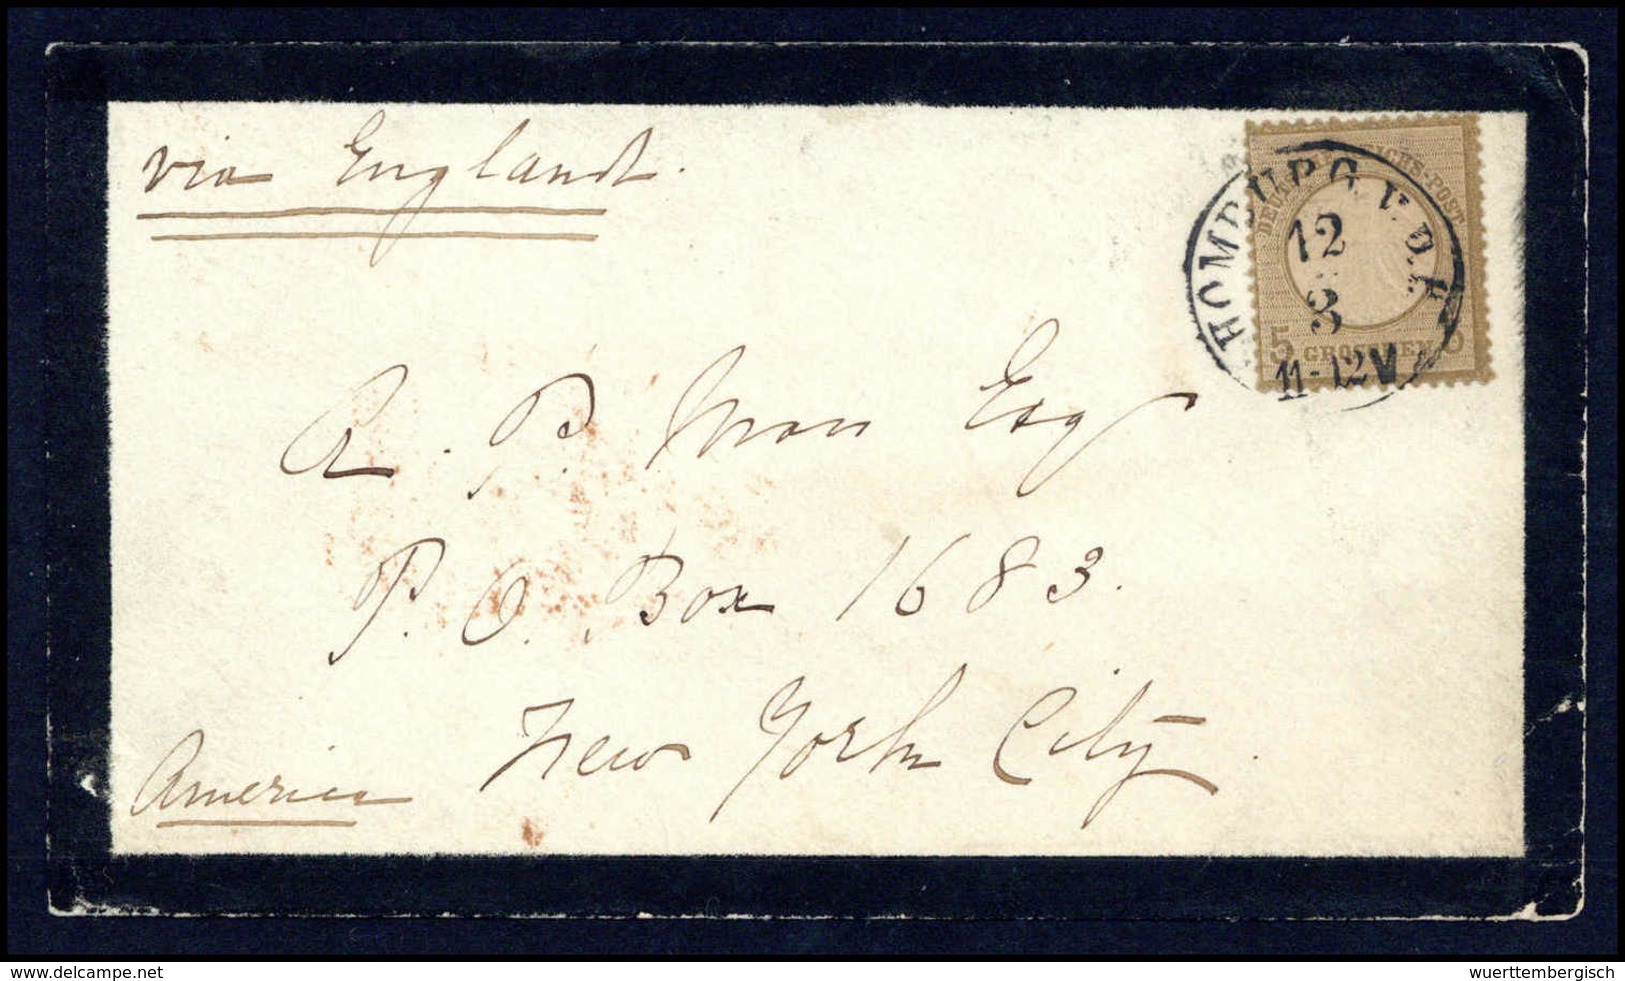 via England.
HOMBURG V.D.H.
12
3
11-12V
DEUTSCHE REICHS-POST
5 GROSCHEN 5
R. P. Man Esq
P. O. Box 1683.
New York City.
America
www.delcampe.net
wuerttembergisch